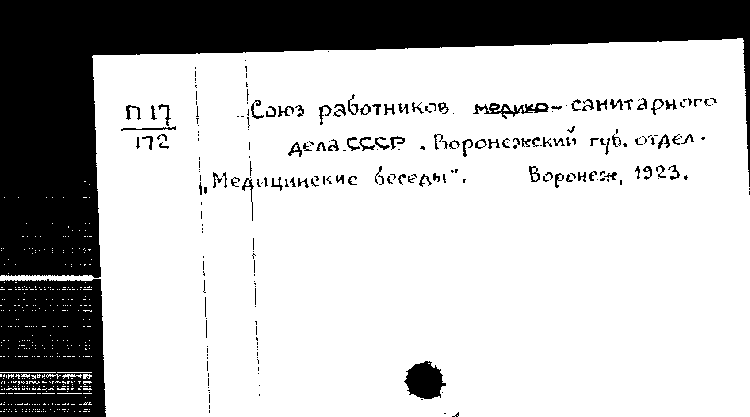 П 17
172
Союз работников медико-санитарного
дела СССР. Воронежский губ. отдел.
„Медицинские беседы". Воронеж, 1923.